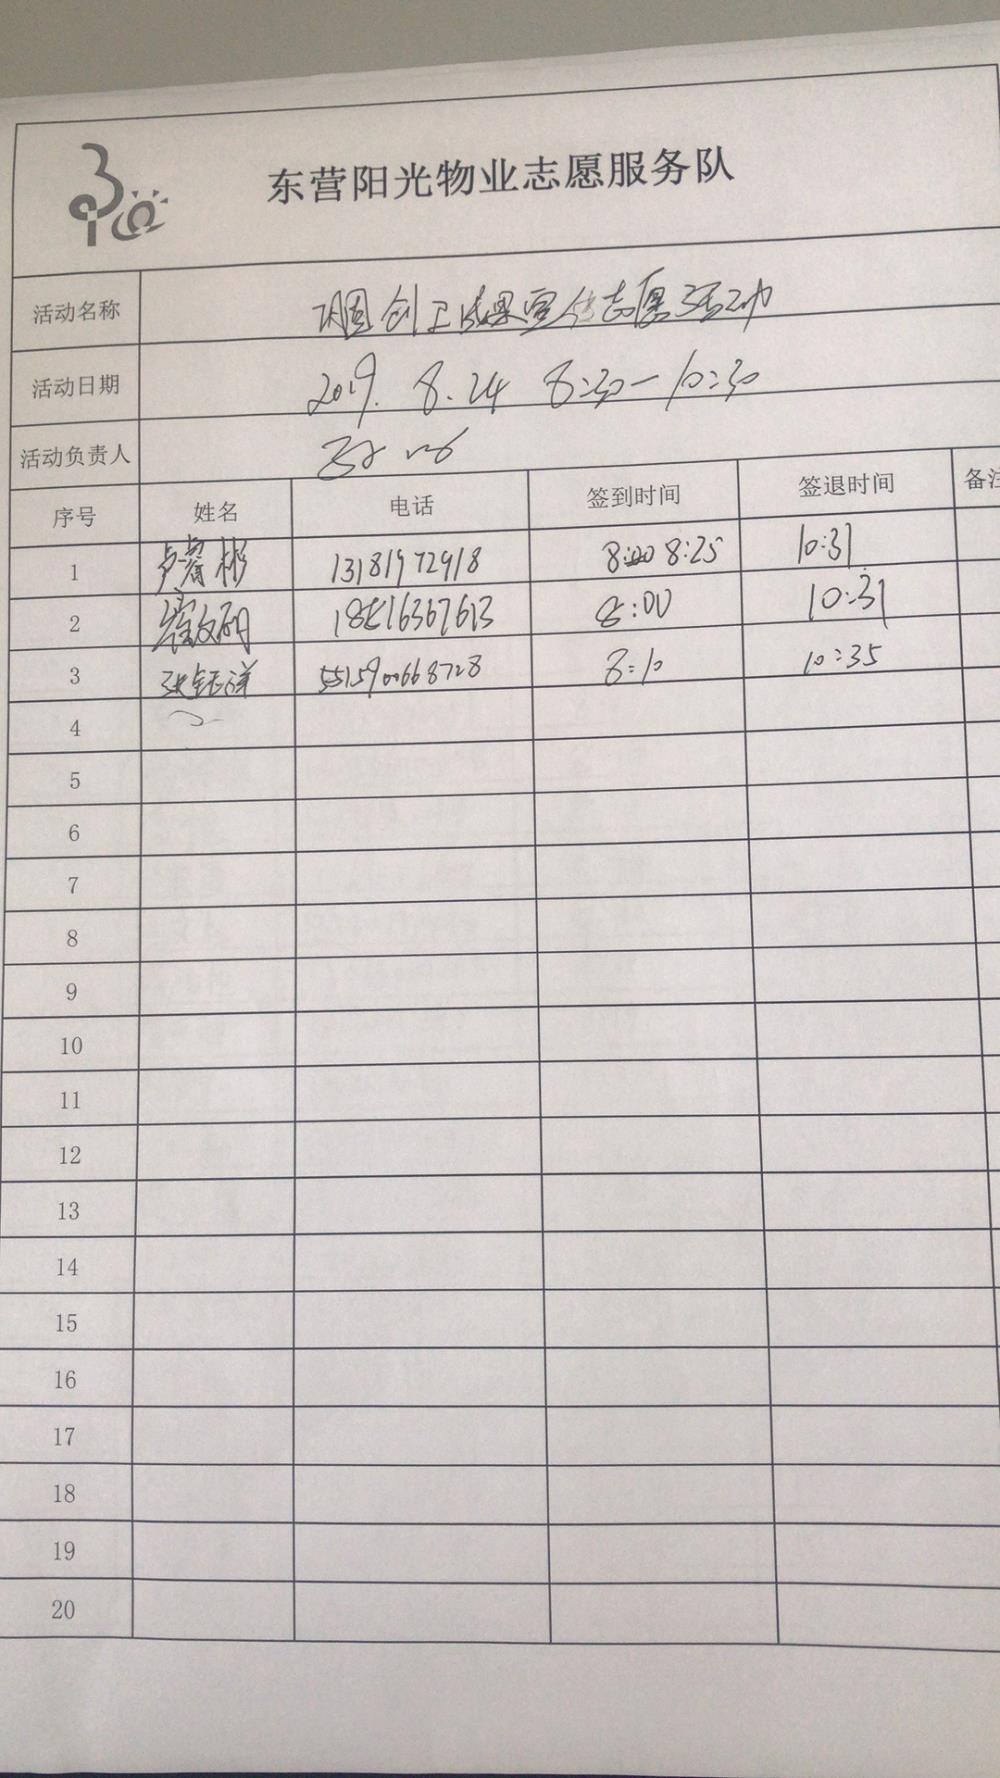 东营阳光物业志愿服务队
活动名称 巩固创卫成果宣传志愿活动
活动日期 2019.8.24 8:30-10:30
活动负责人
序号 姓名 电话 签到时间 签退时间 备注
1 卢睿彬 13181972918 8:25 10:31
2 崔文硕 8:00 10:31
3 张钰洋 8:10 10:35
4
5
6
7
8
9
10
11
12
13
14
15
16
17
18
19
20